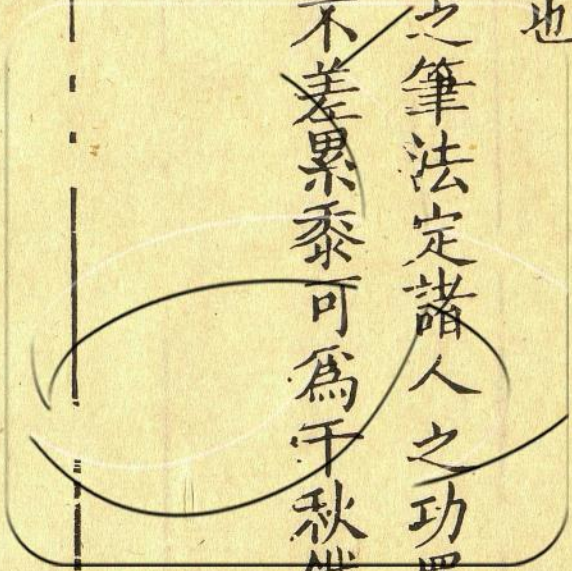 也
之筆法定諸人之功
不差累黍可爲千秋